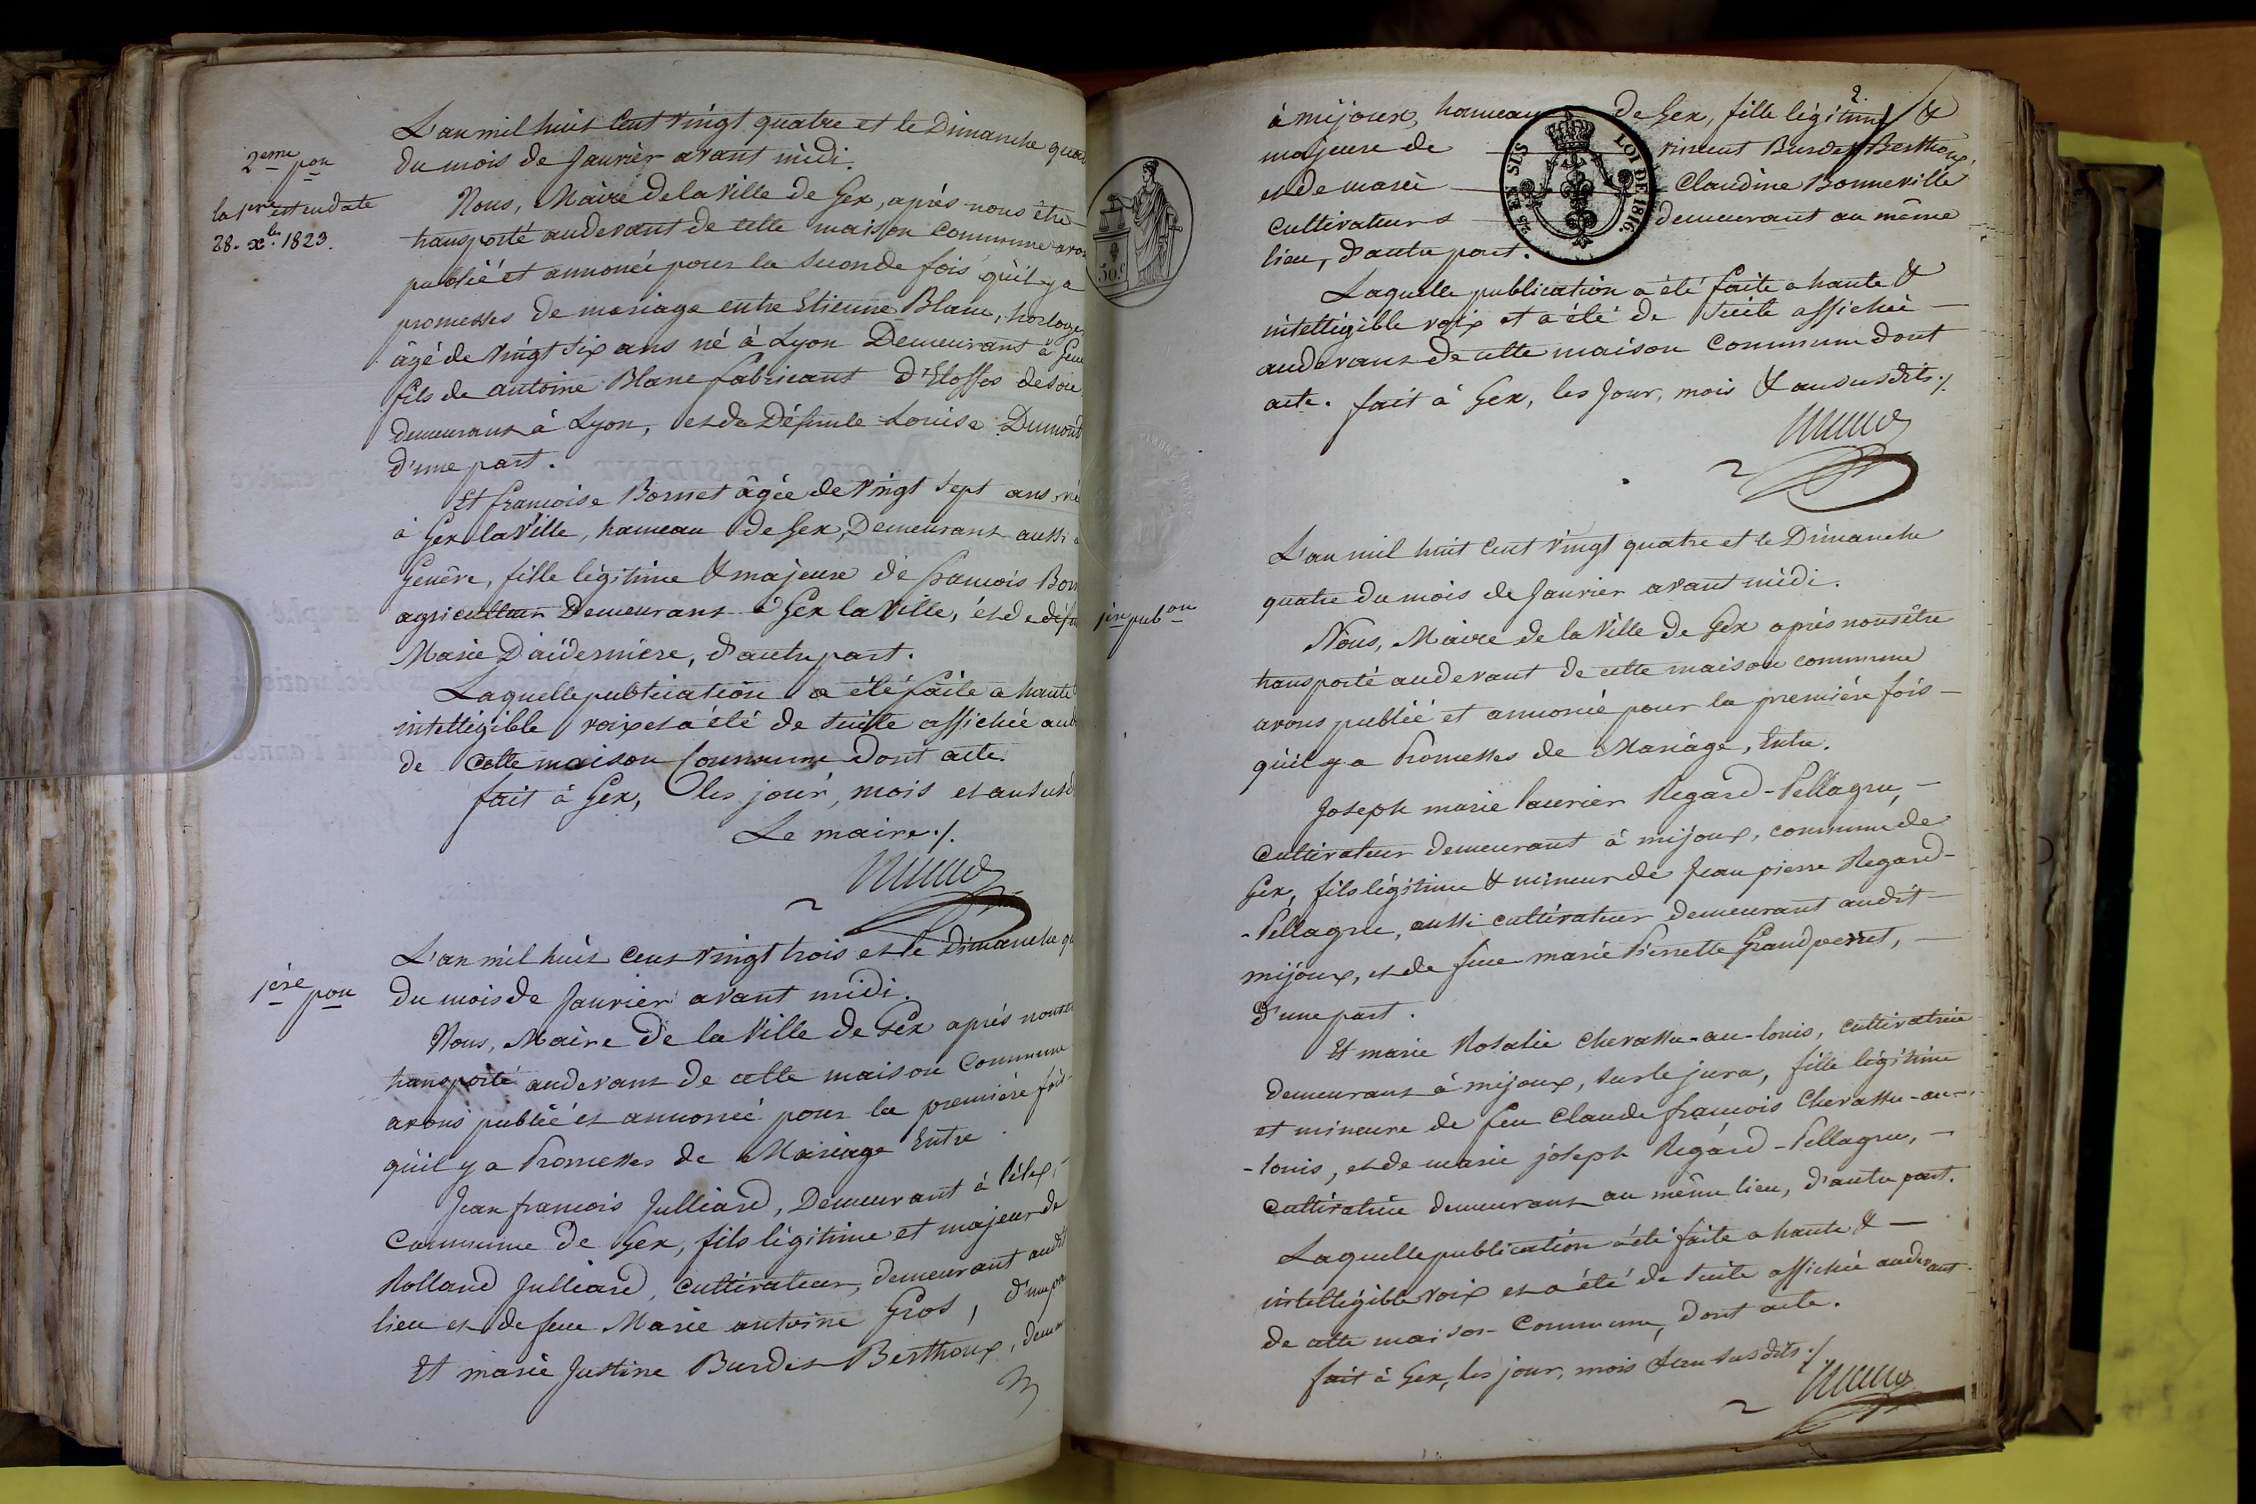 2eme pon
la 1ere est en date
28. xbre 1823.
L'an mil huit Cent vingt quatre et le Dimanche
du mois de Janvier avant midi.
Nous, Maire de la Ville de Gex, après nous être
transporté audevant de cette maison Commune
publié et annoncé pour la seconde fois qu'il y a
promesses de mariage entre Etienne Blanc,
âgé de vingt six ans né à Lyon Demeurant à
fils de antoine Blanc fabricant d'Etoffes de soie
demeurant à Lyon, et de Défunte Louise Dumont
d'une part.
Et françoise Bornet âgée de vingt sept ans
à Gex la Ville, hameau de Gex, Demeurant aussi
Genève, fille légitime & majeure de françois
agriculteur Demeurant à Gex la Ville, et de
Marie Daidernière, d'autre part.
Laquelle publication a été faite a haute
intelligible voix et a été de suite affichée
de cette maison Commune dont acte.
fait à Gex, les jour, mois et an
Le maire ./.
1ère pon
L'an mil huit Cent vingt trois et le Dimanche
du mois de Janvier avant midi.
Nous, Maire de la Ville de Gex après
transporté audevant de cette maison Commune
avons publié et annoncé pour la première fois
qu'il y a Promesses de Mariage Entre
Jean françois Julliard, Demeurant à Lélex,
Commune de Gex, fils légitime et majeur de
Rolland Julliard, cultivateur, demeurant audit
lieu et de feue Marie antoine Gros, d'une
Et marie Justine Burdet Berthoux,
50 c
2.
à mijoux, hameau de Gex, fille légitime &
majeure de vincent Burdet Berthoux,
et de marie Claudine Bonneville
cultivateurs demeurant au même
lieu, d'autre part.
25 EN SUS LOI DE 1816.
Laquelle publication a été faite a haute &
intelligible voix et a été de suite affichée
audevant de cette maison Commune dont
acte. fait à Gex, les Jour, mois & an susdits ./.
1ère pubon
L'an mil huit Cent vingt quatre et le Dimanche
quatre du mois de Janvier avant midi.
Nous, Maire de la Ville de Gex après nous être
transporté audevant de cette maison commune
avons publié et annoncé pour la première fois
qu'il y a Promesses de Mariage, Entre.
Joseph marie laurier Regard-Pellagru,
Cultivateur demeurant à mijoux, commune de
Gex, fils légitime & mineur de Jean pierre Regard-
-Pellagru, aussi cultivateur demeurant audit
mijoux, et de feue marie Pierrette Grandperret,
d'une part.
Et marie Rosalie Chevassu-au-louis, cultivatrice
demeurant à mijoux, sur le jura, fille légitime
et mineure de feu Claude françois Chevassu-au-
-louis, et de marie joseph Regard-Pellagru,
cultivatrice demeurant au même lieu, d'autre part.
Laquelle publication a été faite a haute &
intelligible voix et a été de suite affichée audevant
de cette maison Commune, dont acte.
fait à Gex, les jour, mois & an susdits ./.